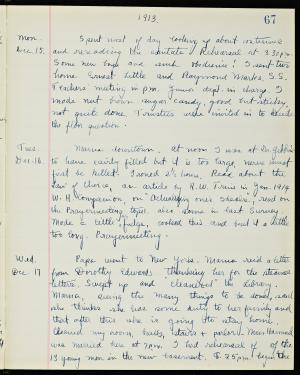 1913.
67
Mon.
Dec. 15.
Spent most of day looking up about costumes
and rereading the cantata. Rehearsal at 3:30 p.m.
Some new boys and such obedience! I sent two
home Ernest Little and Raymond Marks. S.S.
Teachers meeting in p.m. Junior dept. in charge. I
made nut brown sugar candy, good but sticky,
not quite done. Trustees were invited in to decide
the question.
Tues
Dec. 16.
Mama downtown. At noon I was at Dr.
to have cavity filled but it is too large, nerve must
first be killed. Ironed 2 hours. Read about the
Law of , an article by R. W. Trine in Jan. 1914
W. H. Companion, on "Actualizing one's desire", read on
the Prayermeeting topic, also some in last Survey.
Made a little fudge, cooked this and beat it a little
too long. Prayermeeting.
Wed.
Dec. 17
Papa went to New York. Mama rec'd a letter
from Dorothy Edwards thanking her for the
letters. Swept up and cleaned the library.
Mama, seeing the many things to be done, said
she thinks she has some duty to her family and
that after this she is going to stay home.
Cleaned my room, halls, stairs & parlor. Miss
was married here at 7 p.m. I had rehearsal of the
13 young men in the new basement. $ 25 the